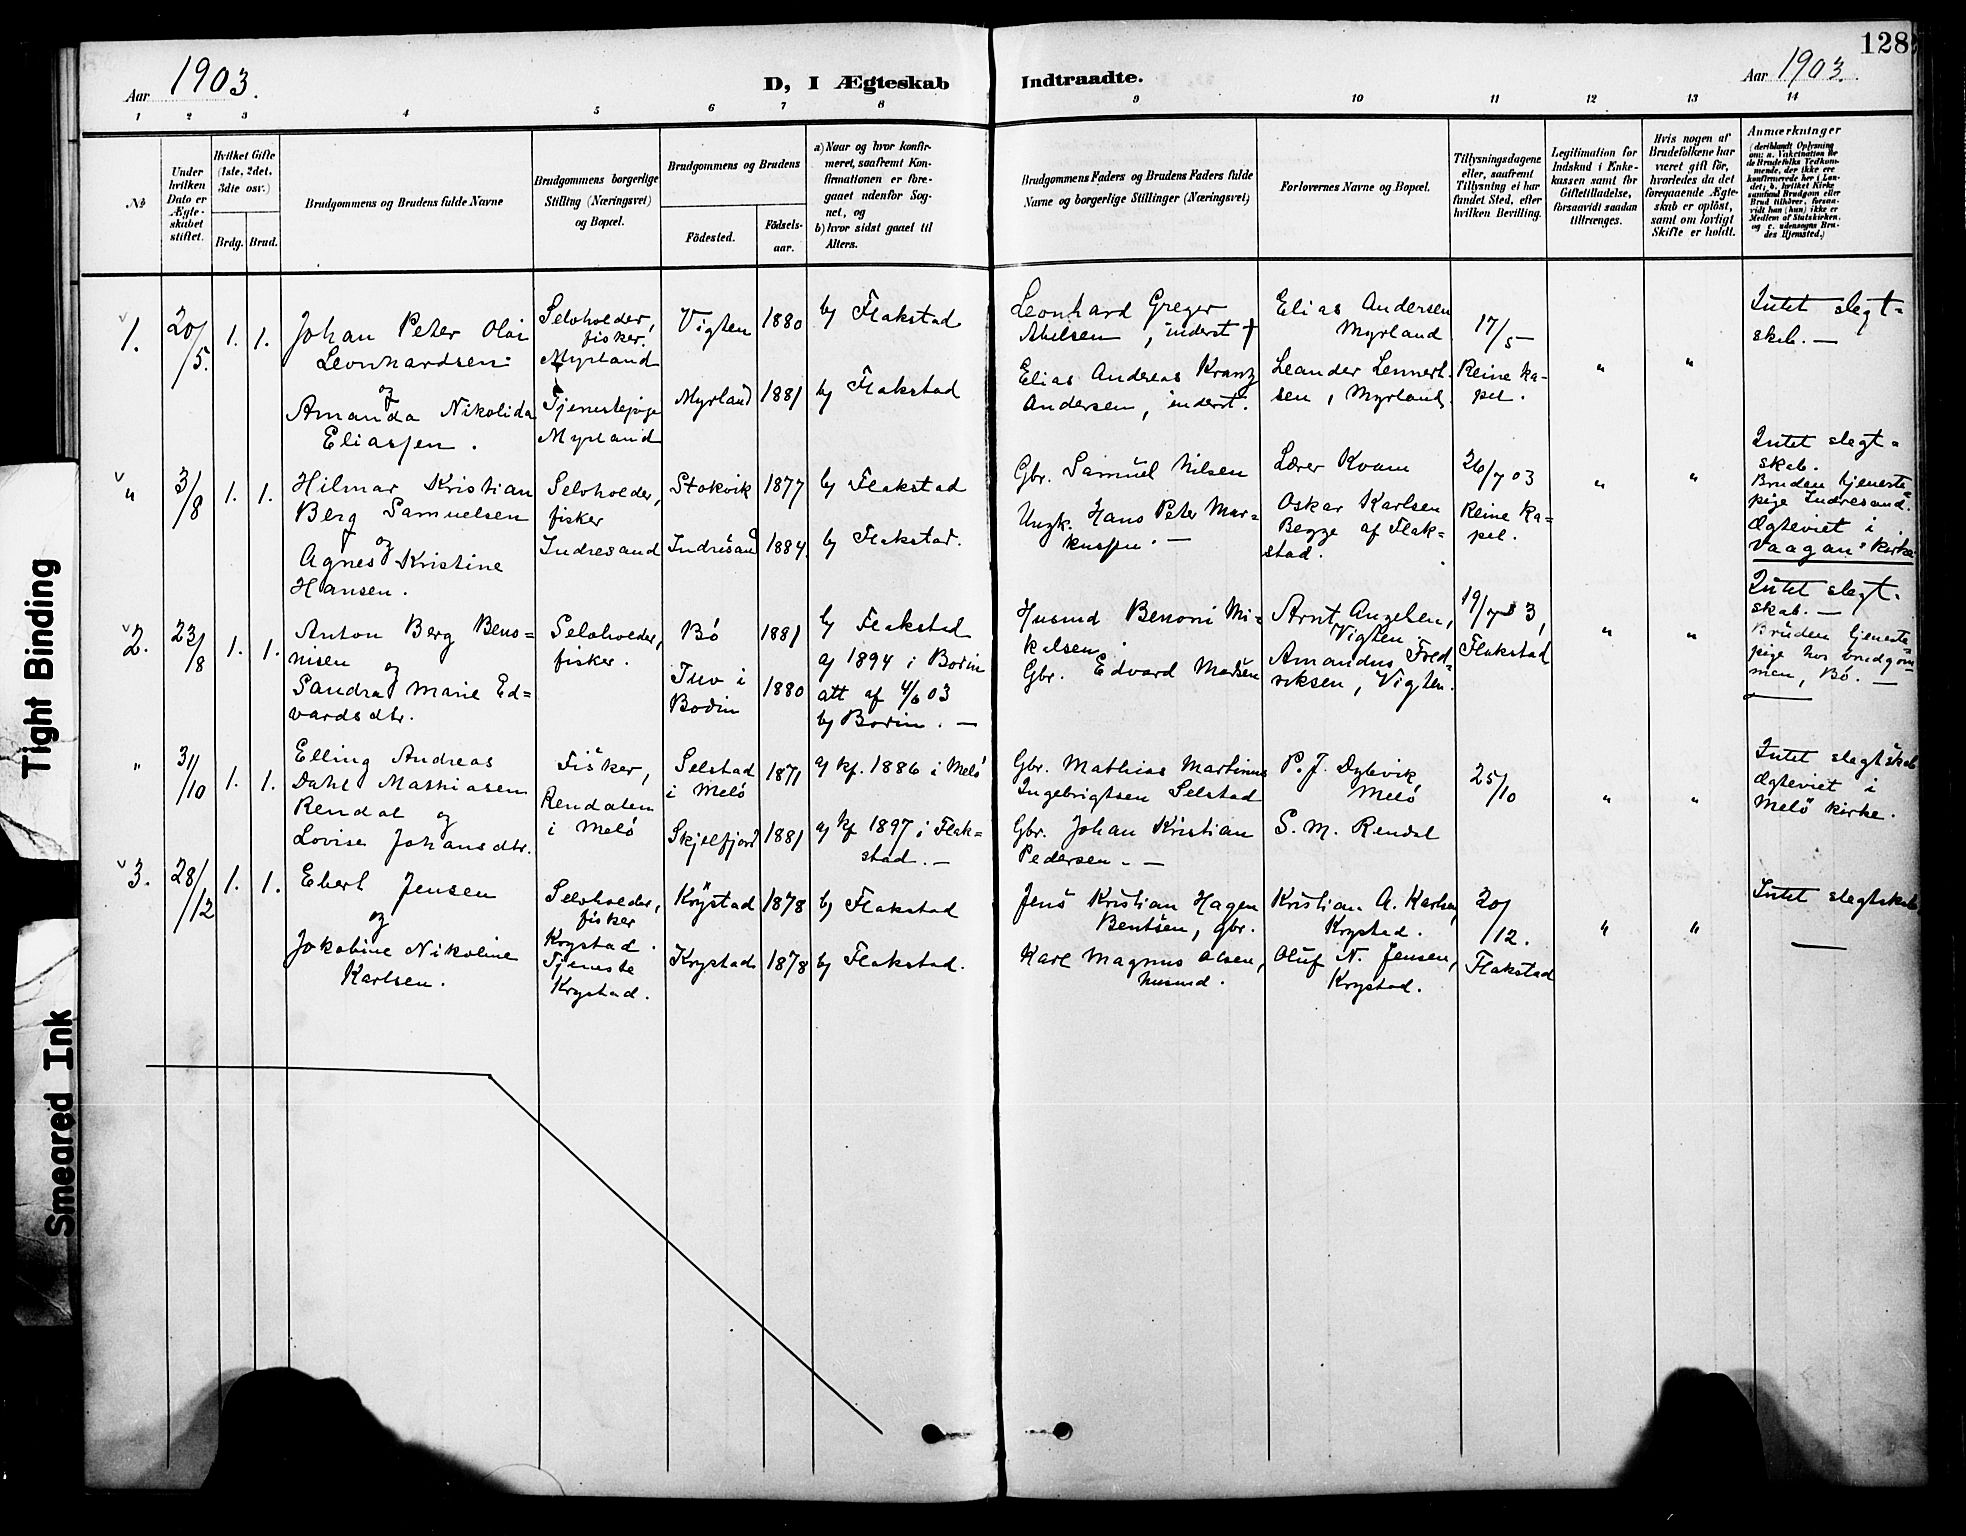 128
Aar 1903.
D, I Ægteskab
Indtraadte.
Aar 1903.
1 2 3 4 5 6 7 8
9 10 11 12 13 14
No
Under
hvilken
Dato er
Ægte-
skabet
stiftet.
Hvilket Gifte
(1ste, 2det,
3die osv.)
Brdg. Brud.
Brudgommens og Brudens fulde Navne
Brudgommens borgerlige
Stilling (Næringsvei)
og Bopæl.
Brudgommens og Brudens
Födested.
Födsels-
aar.
a) Naar og hvor konfir-
meret, saafremt Kon-
firmationen er fore-
gaaet udenfor Sog-
net, og
b) hvor sidst gaaet til
Alters.
Brudgommens Faders og Brudens Faders fulde
Navne og borgerlige Stillinger (Næringsvei)
Forlovernes Navne og Bopæl.
Tillysningsdagene
eller, saafremt
Tillysning ei har
fundet Sted, efter
hvilken Bevilling.
Legitimation for
Indskud i Enke-
kassen samt for
Giftetilladelse,
forsaavidt saadan
tiltrænges.
Hvis nogen af
Brudefolkene har
været gift för,
hvorledes da det
foregaaende Ægte-
skab er oplöst,
samt om lovligt
Skifte er holdt.
Anmærkninger
(deriblandt Oplysning
om: a. Vakcination for
de Brudefolks Vedkom-
mende, der ikke ere
konfirmerede her i Lan-
det; b. hvilket Kirke-
samfund Brudgom eller
Brud tilhörer, forsaa-
vidt han (hun) ikke er
Medlem af Statskirken,
og c. udensogns Bru-
des Hjemsted.)
1.
20/5.
1. 1.
Johan Peter Olai
Leonhardsen
og
Amanda Nikolida
Eliassen.
Selvholder,
fisker.
Myrland
Tjenestepige
Myrland
Vigten 1880
Myrland 1881
b) Flakstad
b) Flakstad
Leonhard Greger
Abelsen, inderst †
Elias Andreas Krantz
Andersen, inderst.
Elias Andersen
Myrland
Leander Lennert-
sen, Myrland.
17/5
Reine ka-
pel.
" "
Intet slegt-
skab. —
"
3/8
1. 1.
Hilmar Kristian
Berg Samuelsen
og
Agnes Kristine
Hansen.
Selvholder,
fisker
Indresand
Stokvik 1877
Indresand 1884.
b) Flakstad
b) Flakstad.
Gbr. Samuel Nilsen
Ungk. Hans Peter Mar-
kussen. —
Lærer Kvam
Oskar Karlsen
Begge af Flak-
stad.
26/7 03
Reine ka-
pel.
" "
Intet slegt-
skab.
Bruden tjeneste-
pige Indresand.
Ægteviet i
Vaagan kirke
2.
23/8
1. 1.
Anton Berg Beno-
nisen
og
Sandra Marie Ed-
vardsdtr.
Selvholder,
fisker.
Bö 1881
Tuv i
Bodin 1880
b) Flakstad
a) 1894 i Bodin
att af 4/6 03
b) Bodin. —
Husmd Benoni Mi-
kelsen
Gbr. Edvard Madsen
Arnt Angelsen,
Vigten
Amandus Fred-
riksen, Vigten.
19/7 3,
Flakstad
" "
Intet slegt-
skab. —
Bruden tjeneste-
pige hos brudgom-
men, Bö. —
"
31/10
1. 1.
Elling Andreas
Dahl Mathiasen
Rendal og
Lovise Johansdtr.
Fisker,
Rendalen
i Melö
Selstad
i Melö 1871
Skjelfjord 1881
a) kf. 1886 i Melö
a) kf 1897 i Flak-
stad. —
Gbr. Mathias Martinus
Ingebrigtsen Selstad
Gbr. Johan Kristian
Pedersen. —
P. J. Dybvik
Melö
S. M. Rendal
25/10
" "
Intet slegtskab
Ægteviet i
Melö kirke.
3.
28/12
1. 1.
Ebert Jensen
og
Jakobine Nikoline
Karlsen.
Selvholder,
fisker
Krystad.
Tjeneste
Krystad.
Krystad 1878
Krystad 1878
b) Flakstad
b) Flakstad.
Jens Kristian Hagen
Bentsen, gbr.
Karl Magnus Olsen,
husmd.
Kristian A. Karlsen,
Krystad.
Oluf N. Jensen,
Krystad.
20/12.
Flakstad
" "
Intet slegtskab
—
Tight Binding
Smeared Ink